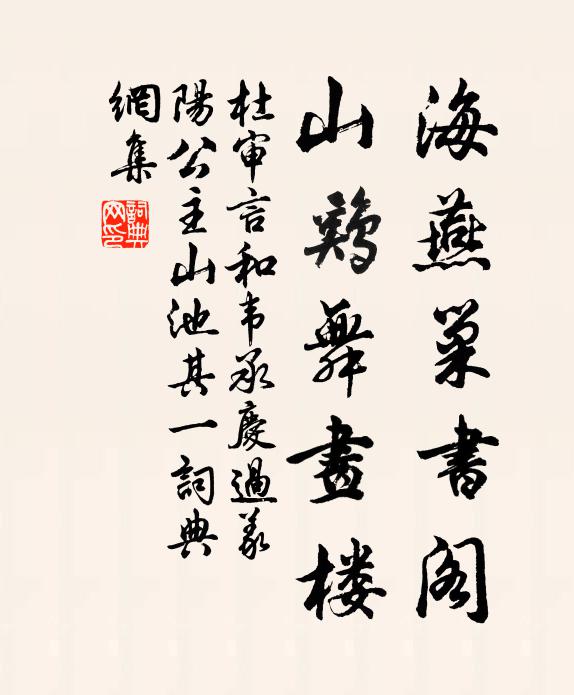 海燕巢書阁
山鷄舞畫楼
杜审言和韦承慶過義
陽公主山池其一詞典
網集
詞典
网印